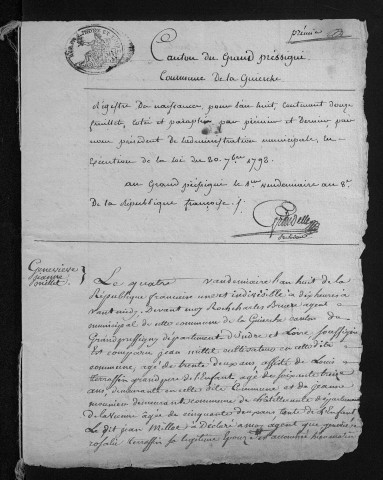 premier
Canton du Grand pressigni
Commune de la Guierche
Registre de naissance, pour l'an huit, contenant douze
feuillets, coté et paraphés, par premier et dernier, par
nous président de l'administration municipale, en
exécution de la loi du 20 7bre 1792.
au Grand pressigni le 1er vendemiaire an 8e
de la République françoise
Genevieve
jeanne
millet
Le quatre vandemiaire l'an huit de la
République francaise une et indivisible à dix heures
Devant moy agent
municipal de cette commune de la Guierche canton du
Grandpressigny département d'indre et Loire soussigné
est comparu jean millet cultivateur en cette dite
commune, agé de trente deux ans assisté de Louis
terrassin grand pere de l'Enfant agé de soixante treize
ans, demeurant en cette dite Commune et de jeanne
demeurant commune de département
de la vienne agée de cinquante deux ans tante de l'Enfant
Le dit jean Millet a déclaré à moy agent que
rosalie terrassin sa legitime Epouse est accouchée hier